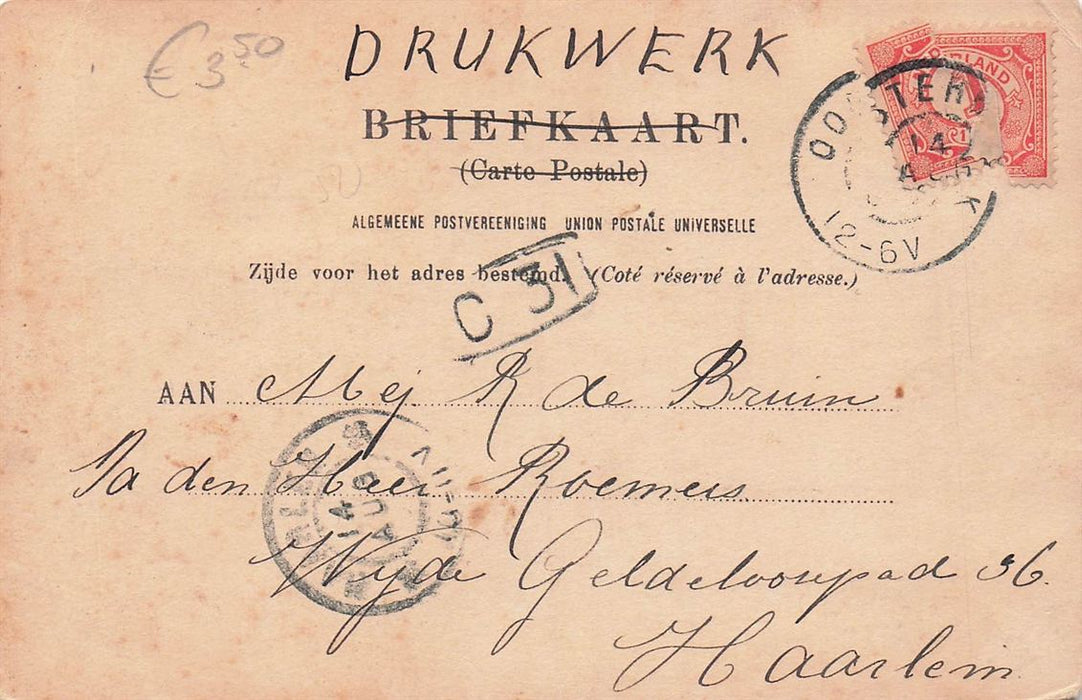 € 3.50
DRUKWERK
BRIEFKAART.
(Carte Postale)
ALGEMEENE POSTVEREENIGING UNION POSTALE UNIVERSELLE
Zijde voor het adres bestemd. (Coté réservé à l'adresse.)
OOSTERB K
14
12-6V
RLAND
C 31
AAN Mej R de Bruin
p/a den Heer Roemers
Wijde Geldeloozepad 36.
Haarlem
14 AUG